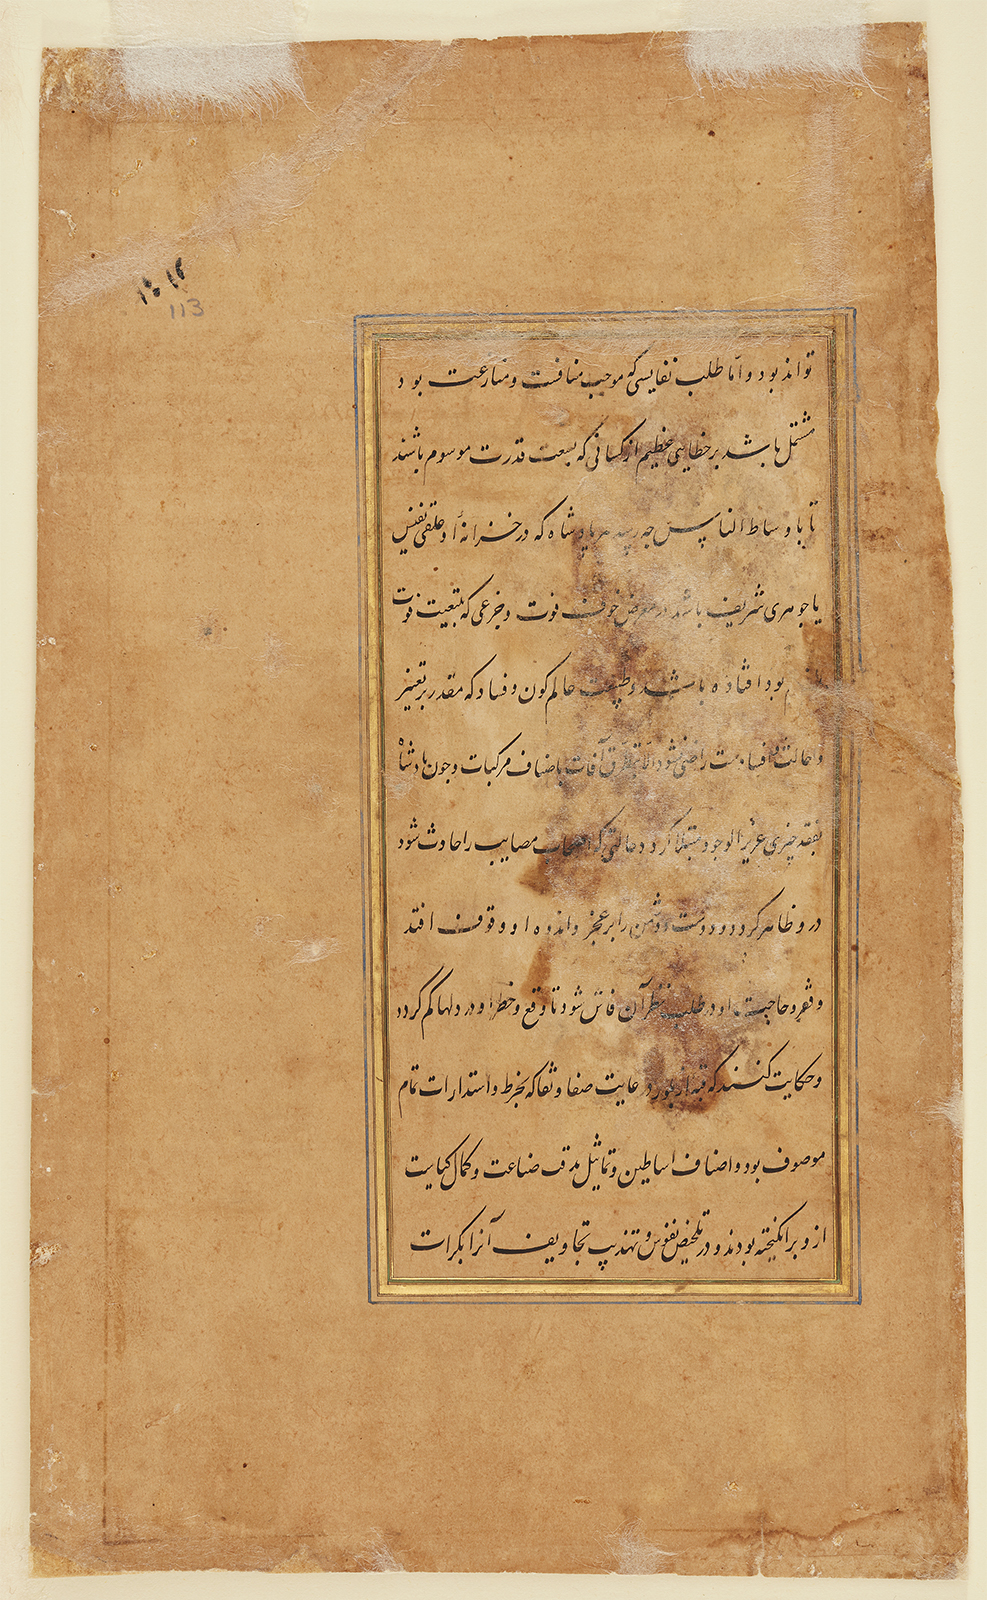 ۱۰۱۲
113
تواند بود و اما طلب نفایسی که موجب منافست و منازعت بود
مشتمل باشد بر خطایی عظیم از کسانی که بسعت قدرت موسوم باشند
تا باوساط الناس جه رسد هر پادشاه که در خزانهٔ او علقی نفیس
یا جوهری شریف باشد در معرض خوف فوت و جزعی که بتبعیت فوت
بود افتاده باشد و طبیعت عالم کون و فساد که مقدر بر تغییر
و احالت و افساد است راضی نشود الا بتطرق آفات باصناف مرکبات و جون بادشاه
بفقد چیزی عزیز الوجود مبتلا گردد حالتی که اصحاب مصایب را حادث شود
درو ظاهر گردد و دوست و دشمن را بر عجز و اندوه او وقوف افتد
و فقر و حاجت او در طلب نظر آن فاش شود تا وقع و خطر او در دلها کم گردد
و حکایت کنند که قبه از بلور در غایت صفا و نقا که بخرط و استدارات تمام
موصوف بود و اصناف اساطین و تماثیل بدقت صناعت و کمال کیاست
ازو برانگیخته بودند و در تلخیص نقوس و تهذیب تجاویف آنرا بکرات